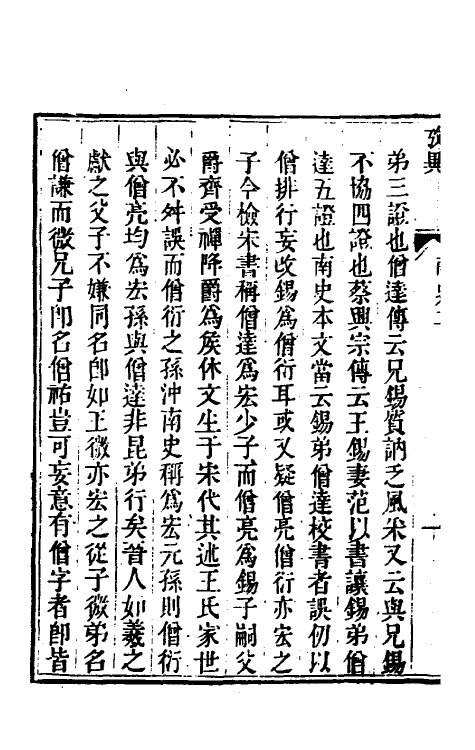 弟三證也僧達傳云兄錫質訥乏風采又云與兄錫
不協四證也蔡興宗傳云王錫妻范以書讓錫弟僧
達五證也南史本文當云錫弟僧達校書者誤仞以
僧排行妄改錫爲僧衍耳或又疑僧亮僧衍亦宏之
子今檢宋書稱僧達爲宏少子而僧亮爲錫子嗣父
爵齊受禪降爵爲矦休文生于宋代其述王氏家世
必不舛誤而僧衍之孫沖南史稱爲宏元孫則僧衍
與僧亮均爲宏孫與僧達非昆弟行矣晉人如羲之
獻之父子不嫌同名卽如王微亦宏之從子微弟名
僧謙而微兄子卽名僧祐豈可妄意有僧字者卽皆